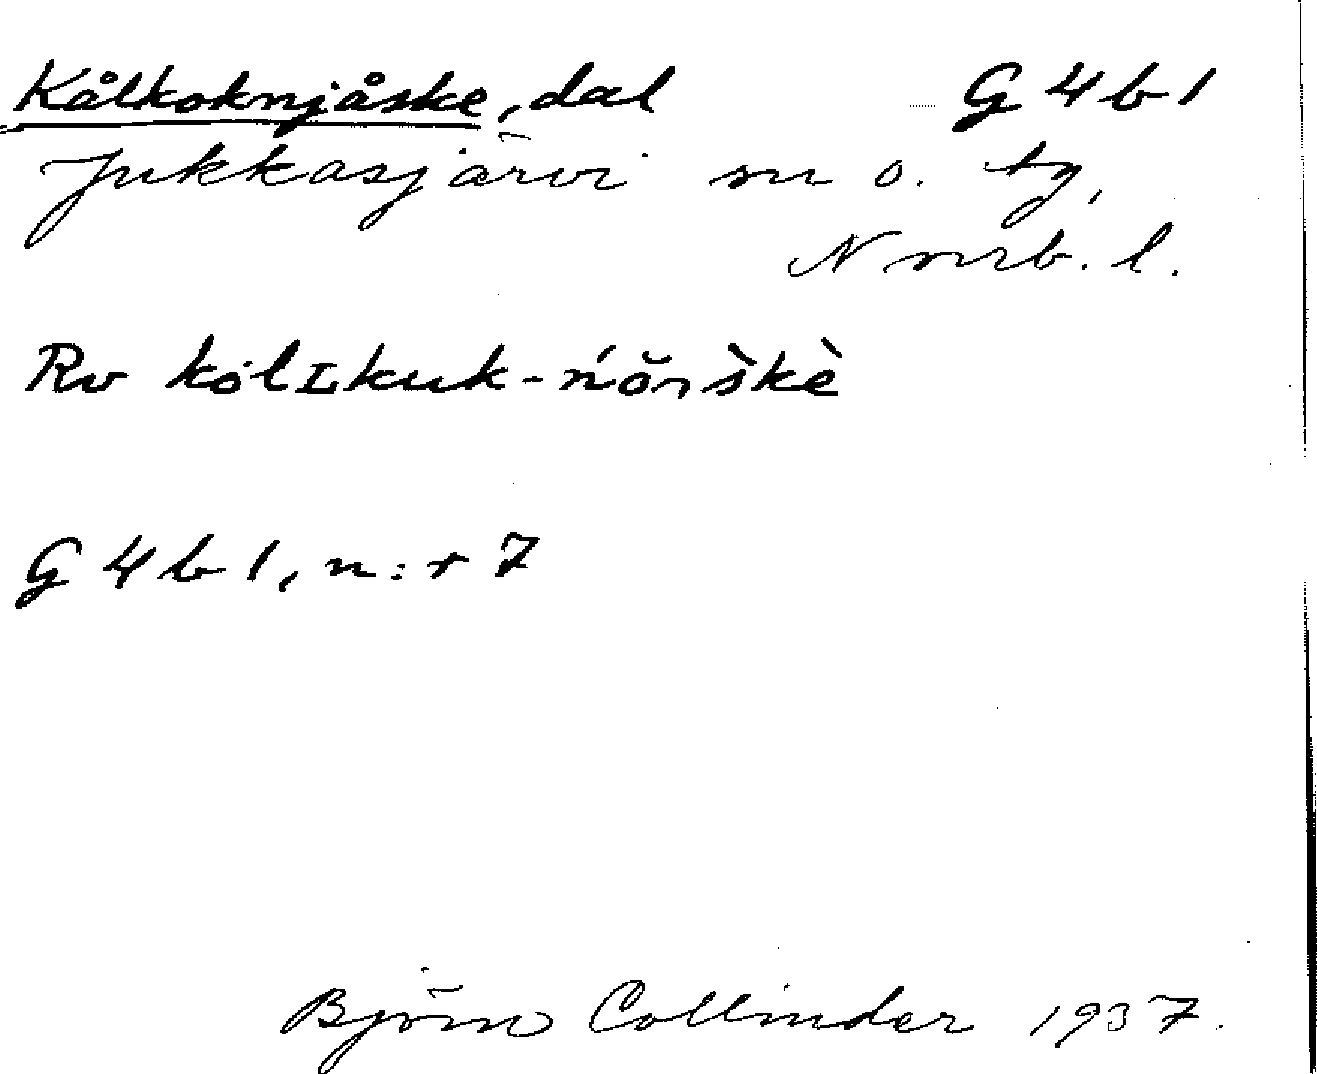 Kålkoknjåske, dal G 4 b 1
Jukkasjärvi sn o. tg,
Nrrb. l.
Rv
G 4 b 1, n:r 7
Björn Collinder 1937.